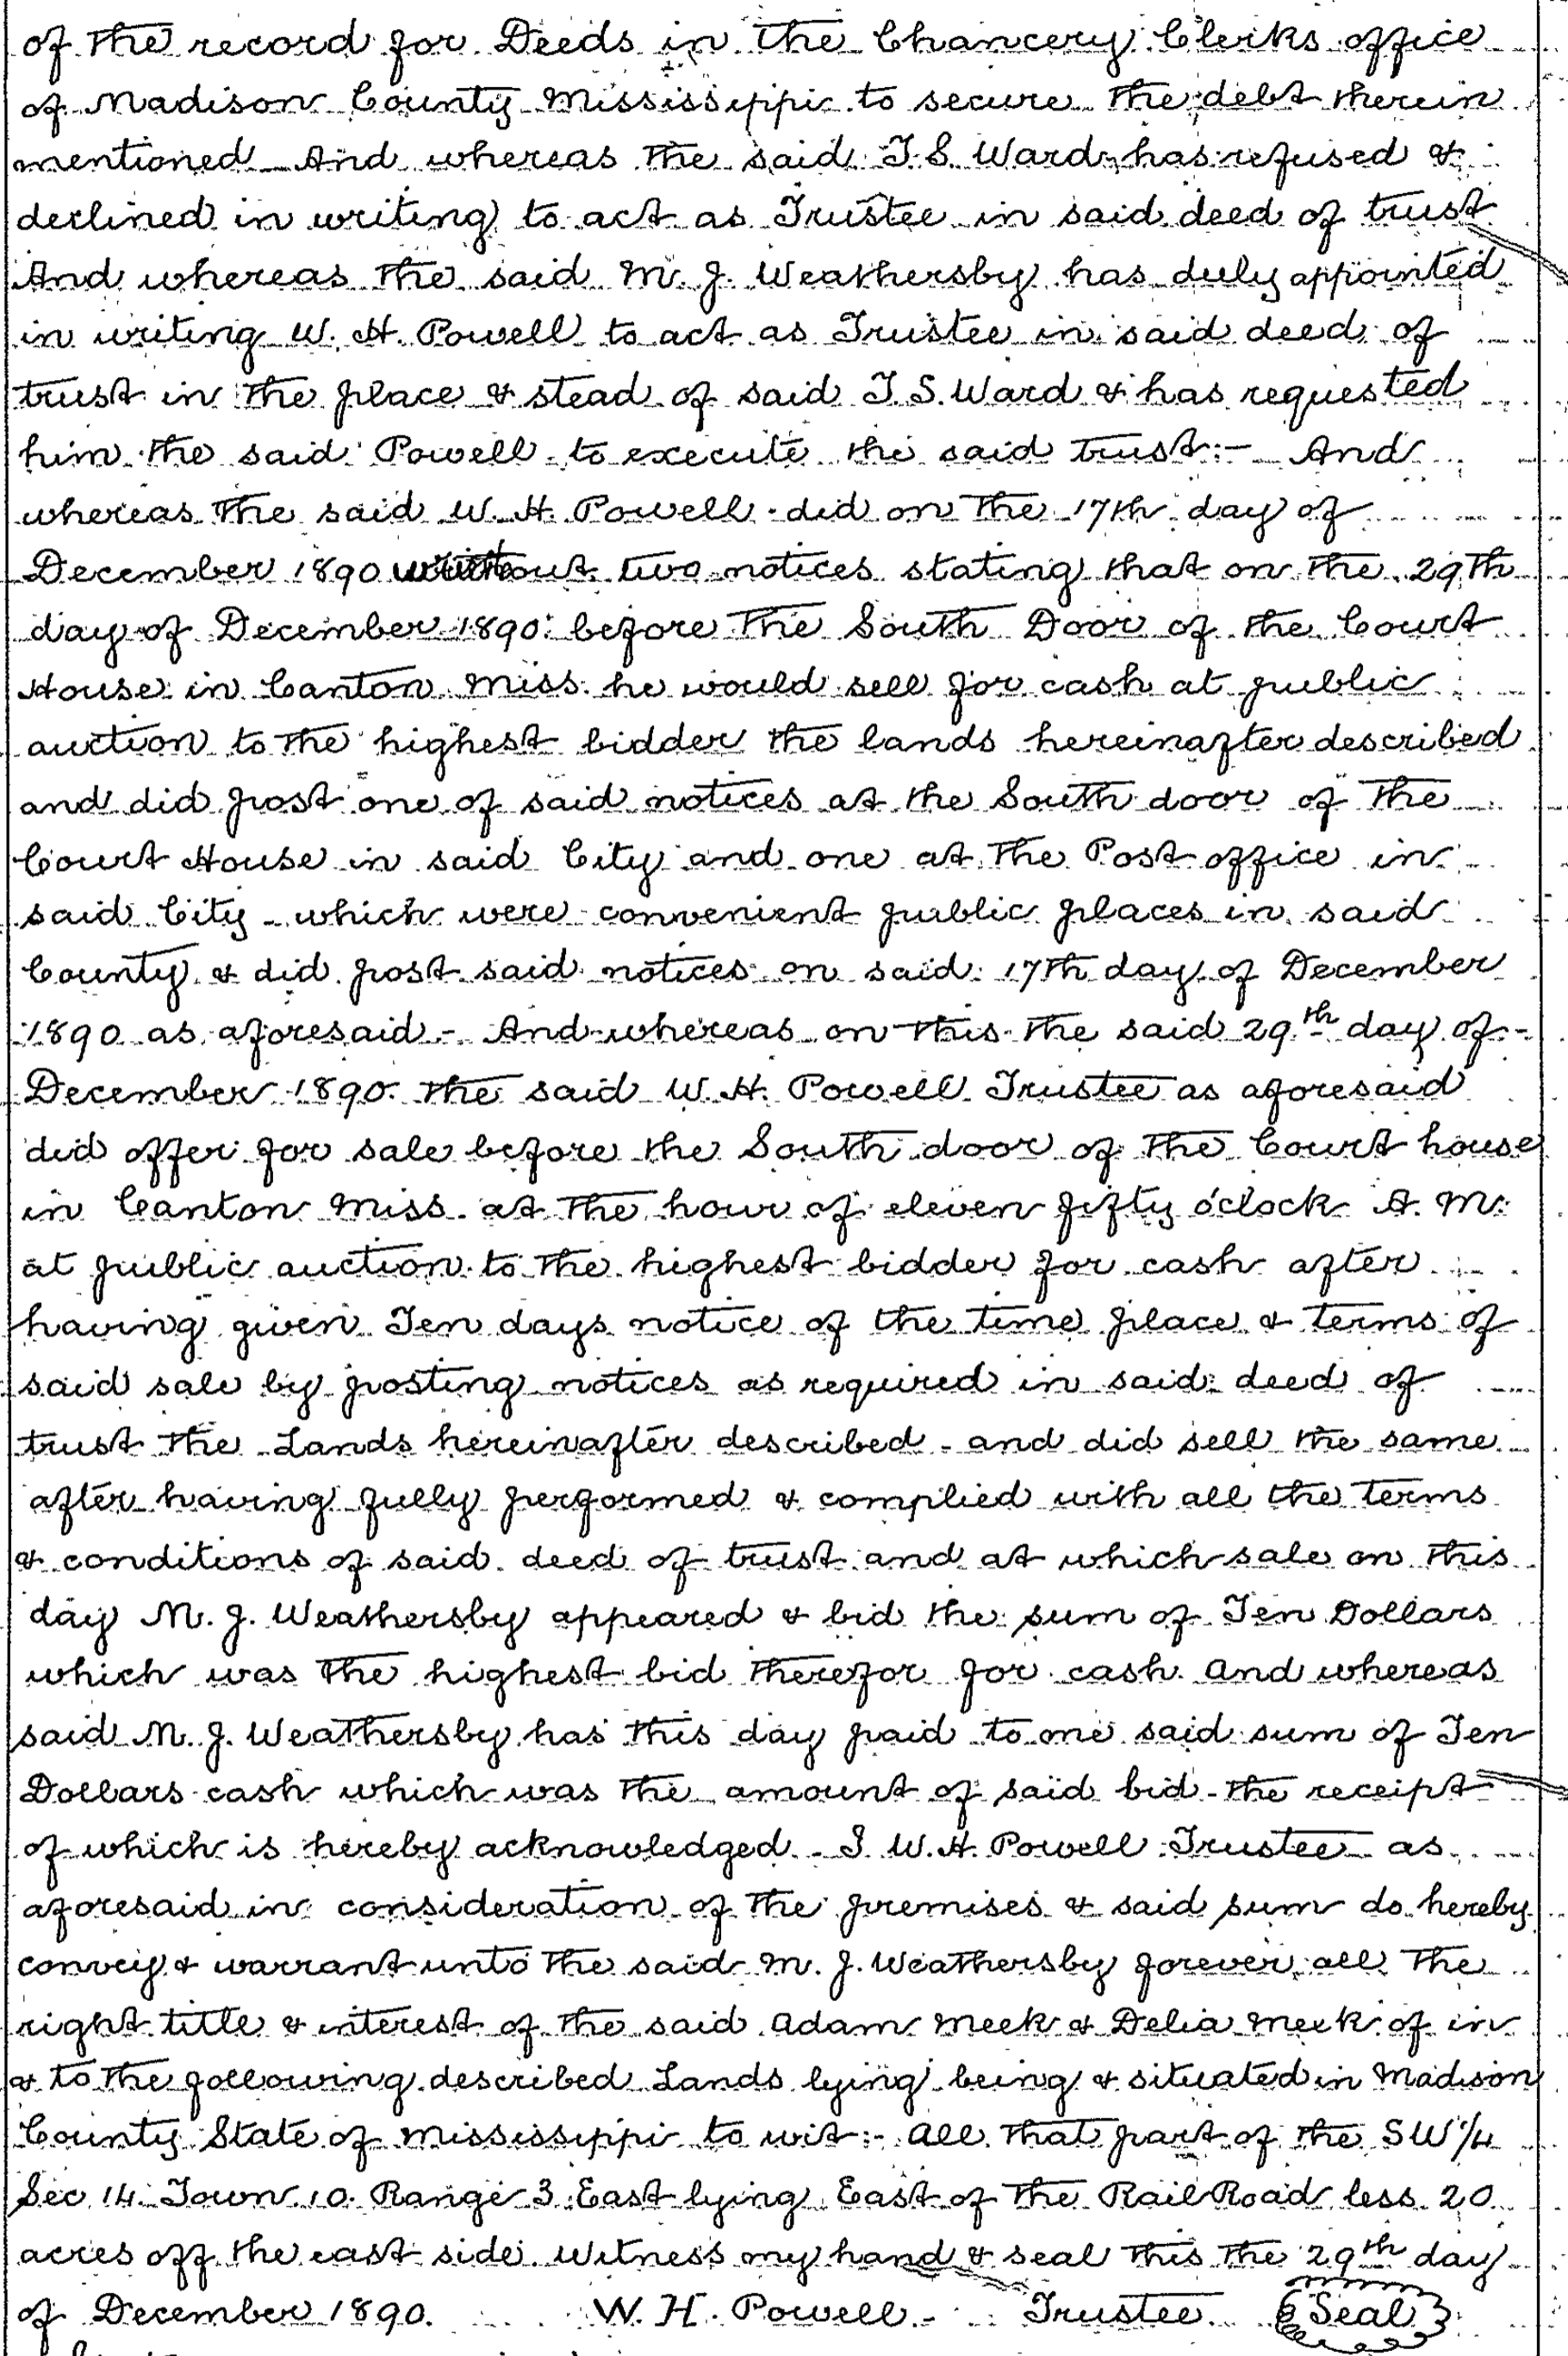 of the record for Deeds in the Chancery Clerks office
of Madison County Mississippi to secure the debt therein
mentioned And whereas the said T.S. Ward has refused &
declined in writing to act as Trustee in said deed of trust
And whereas the said M. J. Weathersby has duly appointed
in writing W. H. Powell to act as Trustee in said deed of
trust in the place & stead of said T. S. Ward & has requested
him the said Powell to execute the said trust:- And
whereas the said W. H. Powell did on the 17th day of
December 1890 out two notices stating that on the 29th
day of December 1890 before the South Door of the Court
House in Canton Miss. he would sell for cash at public
auction to the highest bidder the lands hereinafter described
and did post one of said notices at the South door of the
Court House in said City and one at the Post office in
said City - which were convenient public places in said
County & did post said notices on said 17th day of December
1890 as aforesaid - And whereas on this the said 29th day of
December 1890. the said W. H. Powell Trustee as aforesaid
did offer for sale before the South door of the Court house
in Canton Miss. at the hour of eleven fifty o'clock A. M.
at public auction to the highest bidder for cash after
having given Ten days notice of the time place & terms of
said sale by posting notices as required in said deed of
trust the Lands hereinafter described - and did sell the same
after having fully performed & complied with all the terms
& conditions of said deed of trust and at which sale on this
day M. J. Weathersby appeared & bid the sum of Ten Dollars
which was the highest bid therefor for cash. and whereas
said M. J. Weathersby has this day paid to me said sum of Ten
Dollars cash which was the amount of said bid - the receipt
of which is hereby acknowledged - I W. H. Powell Trustee as
aforesaid in consideration of the premises & said sum do hereby
convey & warrant unto the said M. J. Weathersby forever all the
right title & interest of the said Adam Meek & Delia Meek of in
& to the following described Lands lying being & situated in Madison
County State of Mississippi to wit:- all that part of the SW 1/4
Sec 14 Town 10 Range 3 East lying East of the Rail Road less 20
acres off the east side. Witness my hand & seal this the 29th day
of December 1890. W. H. Powell - Trustee Seal